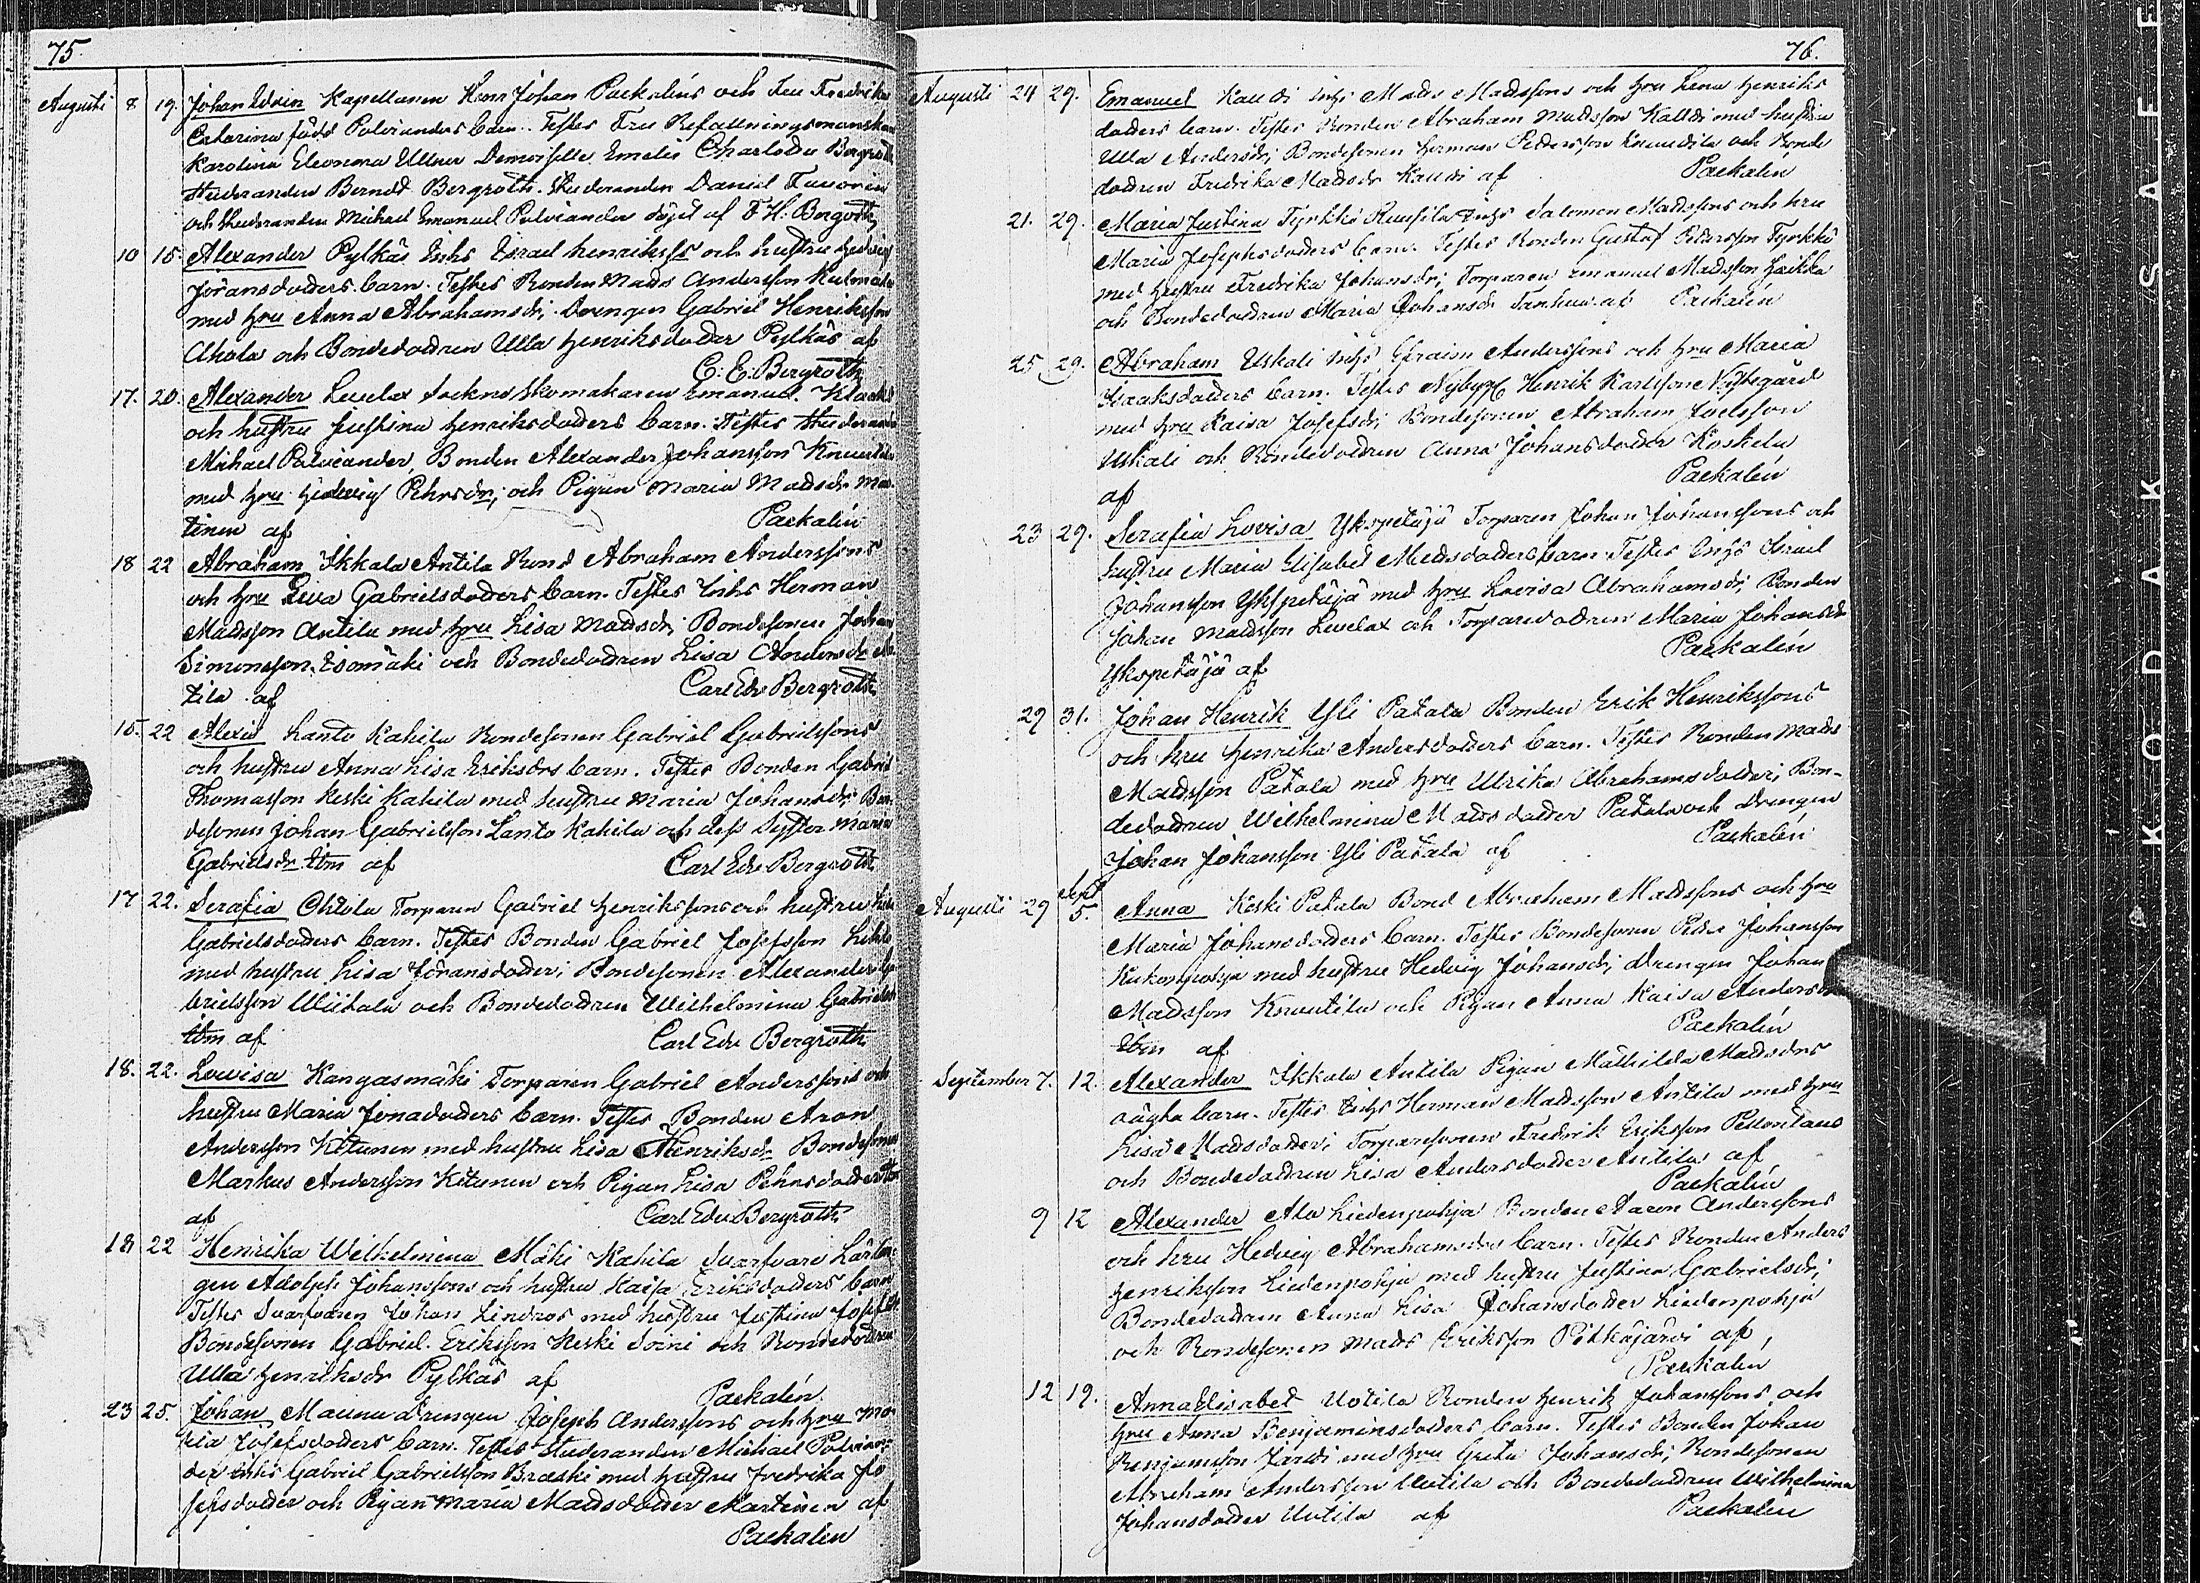 75.
Augusti 8 19. Johan Edvin Kapellanen Herr Johan Packaléns och Fru Fredrika
Catarina född Polvianders barn. Testes Fru Befallningsmanskan
Karolina Eleonora Ullner Demoiselle Emelie Charlotta Bergroth
Studeranden Berndt Bergroth. Studeranden Daniel
och Studeranden Michael Emanuel Polviander döpt af F. H. Bergroth
10 15. Alexander Pylkäs Inhs Israel Henrikssons och hustru Hedvig
Göransdotters barn. Testes Bonden Mads Andersson
med hru Anna Abrahamsdr; Drengen Gabriel Henriksson
Ahola och Bondedottren Ulla Henriksdotter Pylkäs af
C: E: Bergroth
17. 20. Alexander Levelax Sockneskomakaren Emanuel
och hustru Justina Henriksdotters barn. Testes Studeranden
Michael Polviander, Bonden Alexander Johansson Knuutila
med hru Hedevig Pehrsdr; och Pigan Maria Madsdr Mar-
tinen af Packalén
18 22 Abraham Ikkala Antila Bond Abraham Anderssons
och hru Eeva Gabrielsdotters barn. Testes Inhs Herman
Madsson Antila med hru Lisa Madsdr; Bondesonen Johan
Simonsson Isomäki och Bondedottren Lisa Andersdr An-
tila af Carl Edv Bergroth
15. 22 Alexis Lanto Kahila Bondesonen Gabriel Gabrielssons
och hustru Anna Lisa Eriksdrs barn. Testes Bonden Gabriel
Thomasson Keski Kahila med hustru Maria Johansdr; Bon-
desonen Johan Gabrielsson Lanto Kahila och dess Syster Maria
Gabrielsdr ibm af Carl Edv Bergroth
17 22. Serafia Ohtola Torparen Gabriel Henrikssons och hustru
Gabrielsdotters barn. Testes Bonden Gabriel Josefsson
med hustru Lisa Göransdotter; Bondesonen Alexander Ga-
brielsson Wiitala och Bondedottren Wilhelmina Gabrielsdr
ibm af Carl Edv Bergroth
18. 22. Lovisa Kangasmäki Torparen Gabriel Anderssons och
hustru Maria Jonadotters barn. Testes Bonden Aron
Andersson Kitunen med hustru Lisa Henriksdr Bondesonen
Markus Andersson Kitunen och Pigan Lisa Pehrsdotter ibm
af Carl Edv Bergroth
18 22 Henrika Wilhelmina Mäki Kahila Svarfvare Lärlin-
gen Adolph Johanssons och hustru Kaisa Eriksdotters barn
Testes Svarfvaren Johan Lindros med hustru Justina Josefsdr
Bondesonen Gabriel Eriksson Keski Soini och Bondedottren
Ulla Henriksdr Pylkäs af Packalén
23 25. Johan Maunu drengen Joseph Anderssons och hru Ma-
ria Josefsdotters barn. Testes Studeranden Michael Polvian-
der Inhs Gabriel Gabrielsson med hustru Fredrika Jo-
sefsdotter och Pigan Maria Madsdotter Martinen af
Packalén
76.
Augusti 24 29. Emanuel Kauti Inhs Mads Madssons och hru Lena Henriks
dotters barn. Testes Bonden Abraham Madsson Kauti med hustru
Ulla Andersdr; Bondesonen Herman Pedersson Knuutila och Bonde
dottren Fredrika Madsdr Kauti af Packalén
21. 29. Maria Justina Tyrkkö Ruusila Inhs Salomon Madssons och hru
Maria Josephsdotters barn. Testes Bonden Gustaf Petersson Tyrkkö
med hustru Fredrika Johansdr; Torparen Emanuel Madsson Haikka
och Bondedottren Maria Johansdr Tanhua af Packalén
25 29. Abraham Uskali Inhs Efraim Anderssons och hru Maria
Isaaksdotters barn. Testes Henrik Karlsson Nybygård
med hru Kaisa Josefsdr; Bondesonen Abraham Joelsson
Uskali och Bondedottren Anna Johansdotter Koskela
af Packalén
23 29. Serafia Lovisa Ykspetäjä Torparen Johan Johanssons och
hustru Maria Elisabet Madsdotters barn. Testes Inhs Israel
Johansson Ykspetäjä med hru Lovisa Abrahamsdr; Bonden
Johan Madsson Levelax och Torparedottren Maria Johansdr
Ykspetäjä af Packalén
29 31. Johan Henrik Yli Patala Bonden Erik Henrikssons
och hru Henrika Andersdotters barn. Testes Bonden Mads
Madsson Patala med hru Ulrika Abrahamsdotter; Bon-
dedottren Wilhelmina Madsdotter Patala och Drengen
Johan Johansson Yli Patala af Packalén
Augusti 29 Sept 5. Anna Keski Patala Bond Abraham Madssons och hru
Maria Johansdotters barn. Testes Bondesonen Peter Johansson
Kukonpohja med hustru Hedvig Johansdr; drengen Johan
Madsson Knuutila och Pigan Anna Kaisa Andersdr
ibm af Packalén
September 7. 12. Alexander Ikkala Antila Pigan Mathilda Madsdrs
oägta barn. Testes Inhs Herman Madsson Antila med hru
Lisa Madsdotter; Torparesonen Fredrik Eriksson
och Bondedottren Lisa Andersdotter Antila af
Packalén
9 12 Alexander Ala Liedenpohja Bonden Aaron Anderssons
och hru Hedvig Abrahamsdrs barn. Testes Bonden Anders
Henriksson Liedenpohja med hustru Justina Gabrielsdr;
Bondedottren Anna Lisa Johansdotter Liedenpohja
och Bondesonen Mads Eriksson Pitkäjärvi af
Packalén
12 19. Anna Elisabet Uotila Bonden Henrik Johanssons och
hru Anna Benjaminsdotters barn. Testes Bonden Johan
Benjamsson med hru Greta Johansdr; Bondesonen
Abraham Andersson Uotila och Bondedottren Wilhelmina
Johansdotter Uotila af Packalén
KODAK SAFE